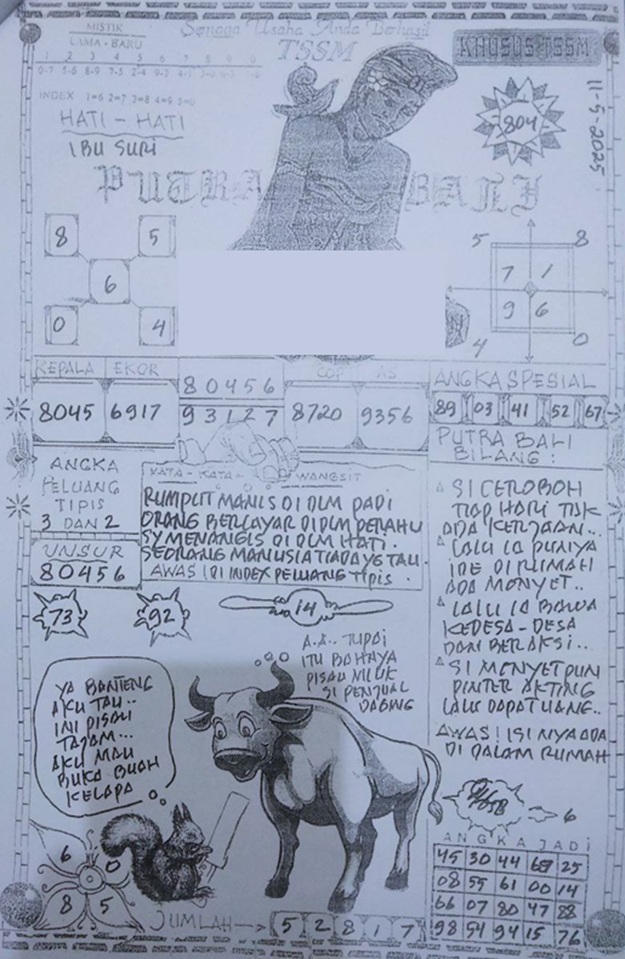 MISTIK
LAMA - BARU
1 2 3 4 5 6 7 8 9 0
Semoga Usaha Anda Berhasil
TSSM
KHUSUS TSSM
INDEX 1=6 2=7 3=8 4=9 5=0
11-5-2025
804
HATI - HATI
IBU SURI
PUTRA BALI
8 5
6
0 4
5 8
7 1
9 6
4 0
KEPALA EKOR
8045 6917
80456
93127
COP AS
8720 9356
ANGKA SPESIAL
89 03 41 52 67
ANGKA
PELUANG
TIPIS
3 DAN 2
UNSUR
80456
KATA - KATA WANGSIT
RUMPUT MANIS DI DLM PADI
ORANG BERLAYAR DI DLM PERAHU
SY MENANGIS DI DLM HATI.
SEORANG MANUSIA TIADA YG TAU.
AWAS! DI INDEX PELUANG TIPIS.
PUTRA BALI
BILANG :
SI CEROBOH
TIAP HARI TIK
ADA KERJAAN..
LALU IA PUNYA
IDE DI RUMAH
ADA MONYET..
LALU IA BAWA
KEDESA-DESA
DAN BERAKSI..
SI MONYET PUN
PINTER AKTING
LALU DAPAT UANG..
AWAS! ISI NYA ADA
DI DALAM RUMAH
73
92
14
A.A.. TUPAI
ITU BAHAYA
PISAU MILIK
SI PENJUAL
DAGING
YA BANTENG
AKU TAU..
INI PISAU
TAJAM...
AKU MAU
BUKA BUAH
KELAPA
6
6 0
8 5
JUMLAH 5 2 8 1 7
ANGKA JADI
45 30 44 25
08 55 61 00 14
66 07 80 47 88
98 54 94 15 76